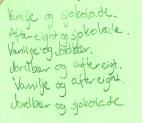 Vanilje og sjokolade.
Aftereight og sjokolade.
Vanilje og Jordbær.
Jordbær og aftereigt.
Vanilje og aftereight.
Jordbær og sjokolade